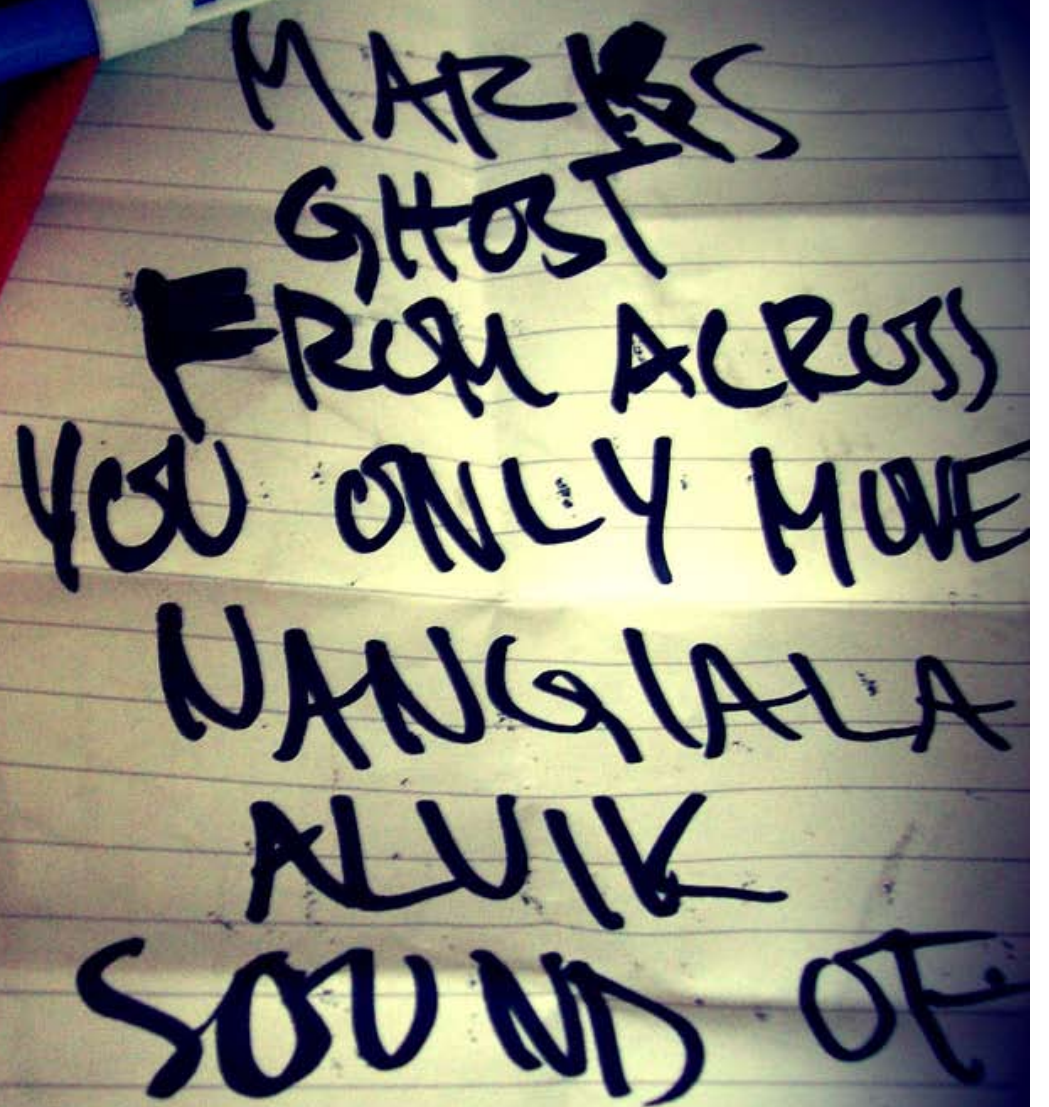 MARKS
GHOST
FROM ACROSS
YOU ONLY MOVE
NANGIALA
ALVIK
SOUND OF